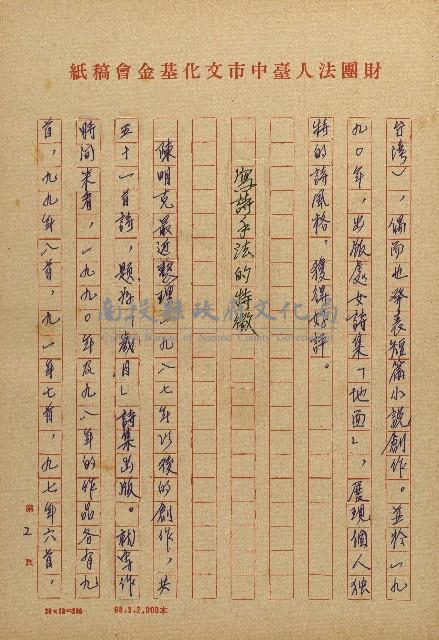 財團法人臺中市文化基金會稿紙
台湾），偶而也發表短篇小說創作。並於一九
九〇年，出版處女詩集「地面」，展現個人独
特的詩風格，獲得好評。
寫詩手法的特徵
陳明克最近整理一九八七年以後的創作，共
五十一首詩，題為「歲月」詩集出版。就寫作
時间來看，一九九〇年及九八年的作品各有九
首，九九年八首，九一年七首，九七年六首，
第2頁
20×10=200
68.3.2,000本
南投縣政府文化局
Cultural Bureau of Nantou County Government